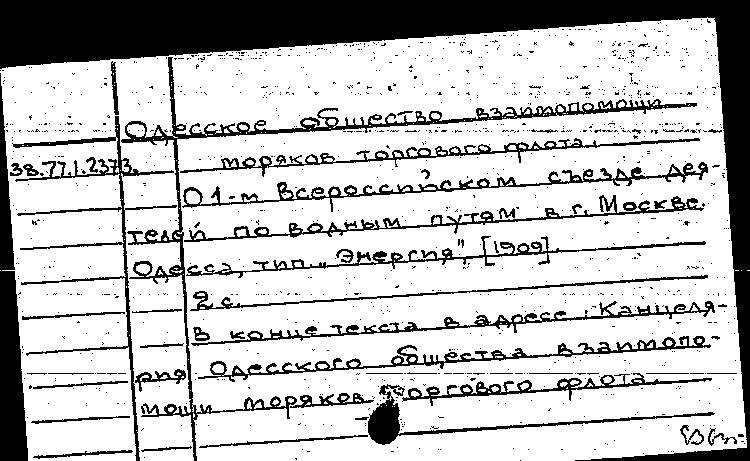 Одесское общество взаимопомощи
38.77.1.2373. моряков торгового флота.
О 1-м Всероссийском съезде дея-
телей по водным путям в г. Москве.
Одесса, тип. „Энергия", [1909].
2 с.
В конце текста в адресе: Канцеля-
рия Одесского общества взаимопо-
мощи моряков торгового флота.